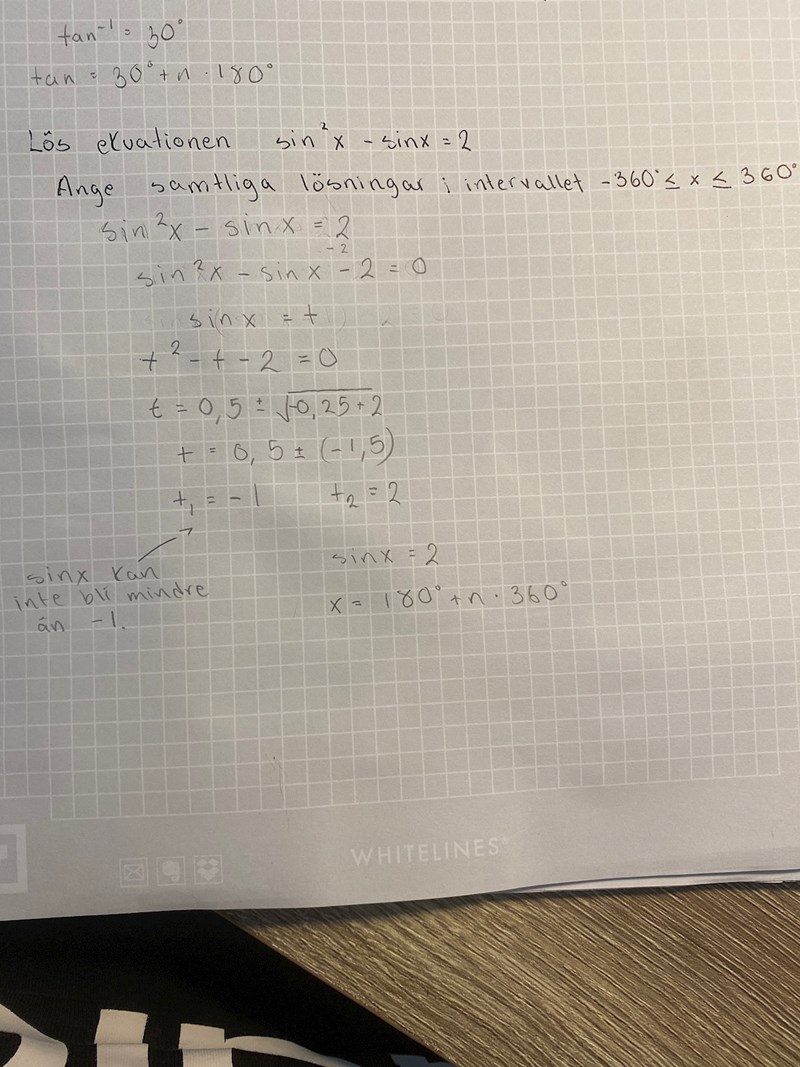 tan⁻¹ = 30°
tan = 30° + n · 180°
Lös ekvationen sin²x - sinx = 2
Ange samtliga lösningar i intervallet -360° ≤ x ≤ 360°
sin²x - sinx = 2
-2
sin²x - sinx - 2 = 0
sinx = t
t² - t - 2 = 0
t = 0,5 ± √-0,25+2
t = 0,5 ± (-1,5)
t₁ = -1 t₂ = 2
sinx kan
inte bli mindre
än -1.
sinx = 2
x = 180° + n · 360°
WHITELINES®